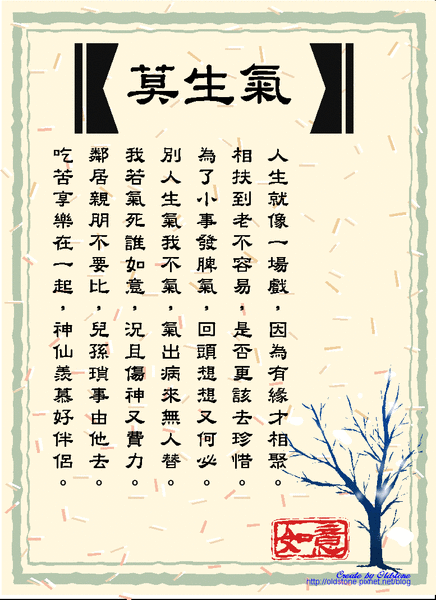 莫生氣
人生就像一場戲，因為有緣才相聚。
相扶到老不容易，是否更該去珍惜。
為了小事發脾氣，回頭想想又何必。
別人生氣我不氣，氣出病來無人替。
我若氣死誰如意，況且傷神又費力。
鄰居親朋不要比，兒孫瑣事由他去。
吃苦享樂在一起，神仙羨慕好伴侶。
如意
Create by Oldstone
http://oldstone.pixnet.net/blog